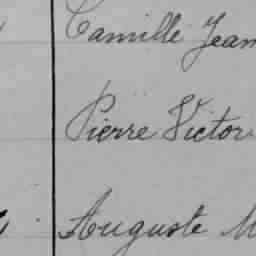 Camille Jean
Pierre Victor
Auguste M